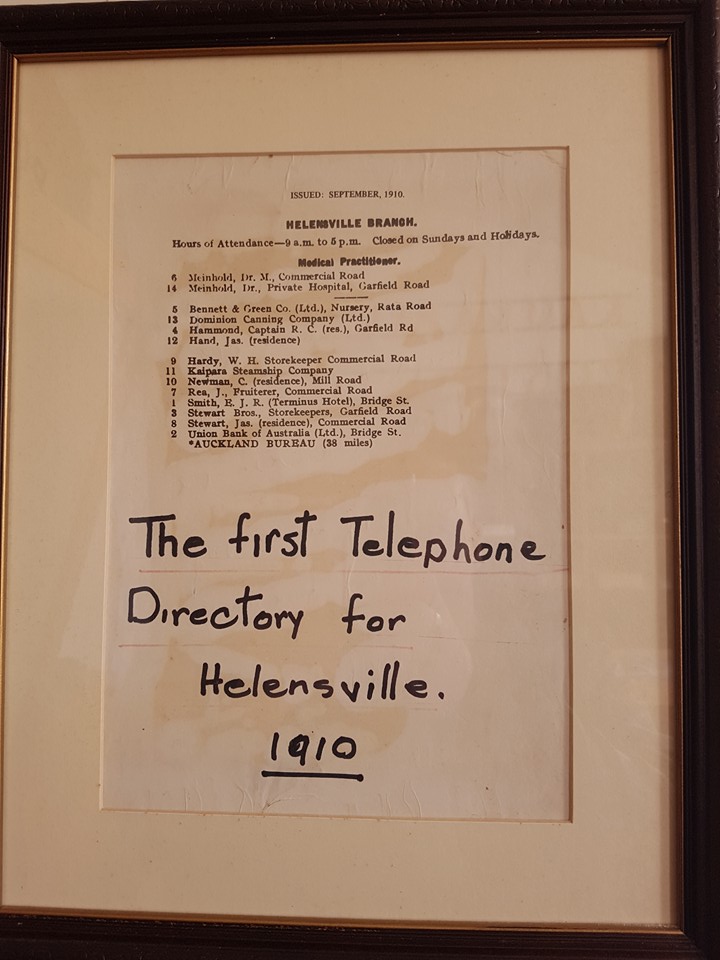 ISSUED: SEPTEMBER, 1910.
HELENSVILLE BRANCH.
Hours of Attendance—9 a.m. to 5 p.m. Closed on Sundays and Holidays.
Medical Practitioner.
6 Meinhold, Dr. M., Commercial Road
14 Meinhold, Dr., Private Hospital, Garfield Road
5 Bennett & Green Co. (Ltd.), Nursery, Rata Road
13 Dominion Canning Company (Ltd.)
4 Hammond, Captain R. C. (res.), Garfield Rd
12 Hand, Jas. (residence)
9 Hardy, W. H. Storekeeper Commercial Road
11 Kaipara Steamship Company
10 Newman, C. (residence), Mill Road
7 Rea, J., Fruiterer, Commercial Road
1 Smith, E. J. R. (Terminus Hotel), Bridge St.
3 Stewart Bros., Storekeepers, Garfield Road
8 Stewart, Jas. (residence), Commercial Road
2 Union Bank of Australia (Ltd.), Bridge St.
*AUCKLAND BUREAU (38 miles)
The first Telephone
Directory for
Helensville.
1910